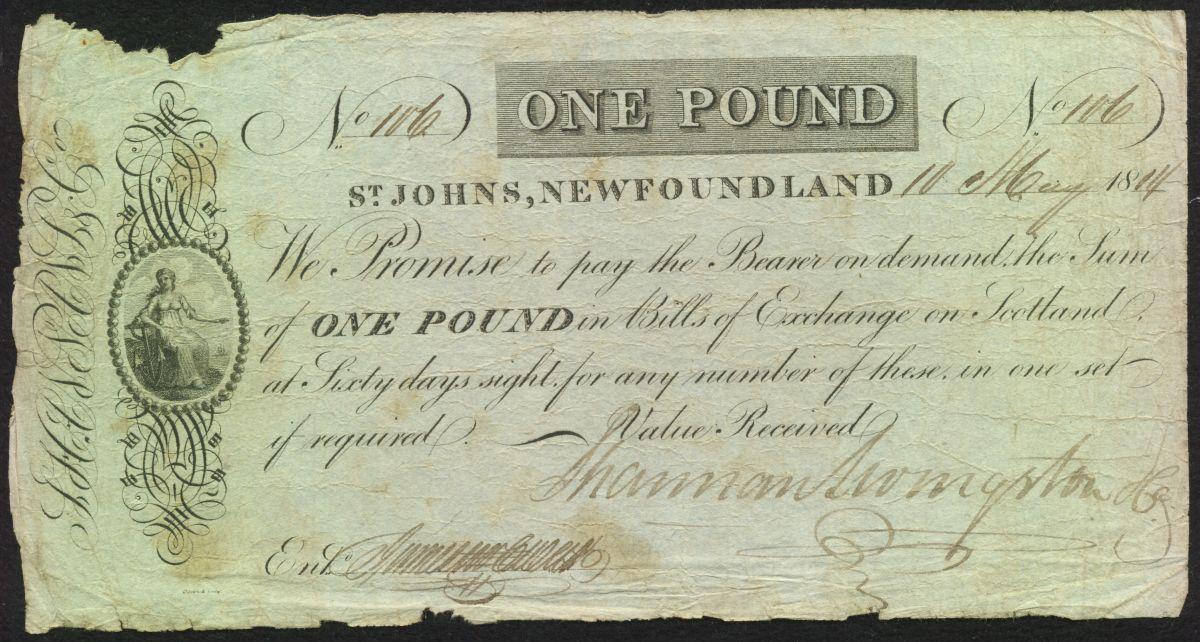 No. 106
ONE POUND
No. 106
ST. JOHNS, NEWFOUNDLAND 10 May 1814
We Promise to pay the Bearer on demand, the Sum
of ONE POUND in Bills of Exchange on Scotland,
at Sixty days sight, for any number of these, in one set
if required. Value Received
Shannan Livingston & Co
Entd.